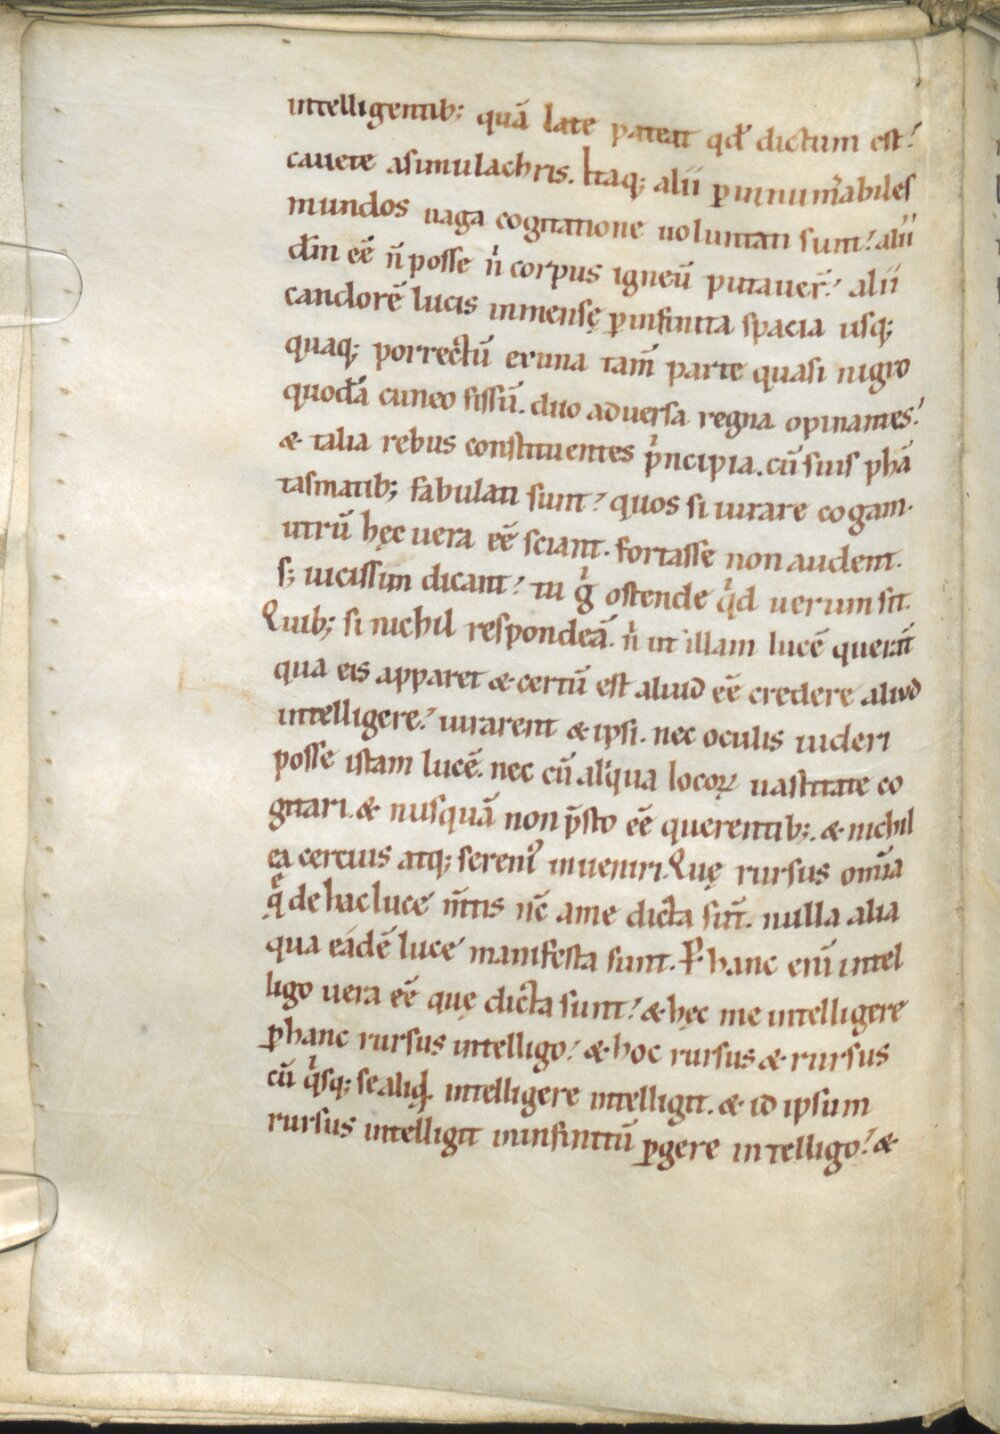 intelligentib; quā late pateat qd̄ dictum est?
cauete asimulachris. Itaq; alii ꝑ innum̄abiles
mundos uaga cogitatione uolutati sunt? alii
dm̄ eē n̄ posse nͥ corpus igneū putauer̄? alii
candorē lucis inmensę ꝑ infinita spacia usq;
quaq; porrectū exuna tam̄ parte quasi nigro
quodā cuneo fissū. duo aduersa regna opinantes?
& talia rebus constituentes pͥncipia. cū suis phā
tasmatib; fabulati sunt? quos si iurare cogam.
utrū hęc uera eē sciant. fortasse non audent.
s; uicissim dicant? tu gͥ ostende qͥd uerum sit.
Quib; si nichil respondeā. nͥ ut illam lucē querāt
qua eis apparet & certū est aliud eē credere aliud
intelligere? iurarent & ipsi. nec oculis uideri
posse istam lucē. nec cū alͥqua locoꝝ uastitate co
gitari. & nusquā non p̄sto eē querentib;. & nichil
ea certius atq; sereniꝰ inueniri. Quę rursus om̄ia
q̨ͣ de hac luce m̄tis nc̄ ame dicta sūt. nulla alia
qua eādē luce manifesta sunt. Ꝑ hanc enī intel
ligo uera eē quę dicta sunt? & hęc me intelligere
ꝑ hanc rursus intelligo? & hoc rursus & rursus
cū qͥsq; se aliqd̄. intelligere intelligit. & id ipsum
rursus intelligit ininfinitū ꝑgere intelligo? &